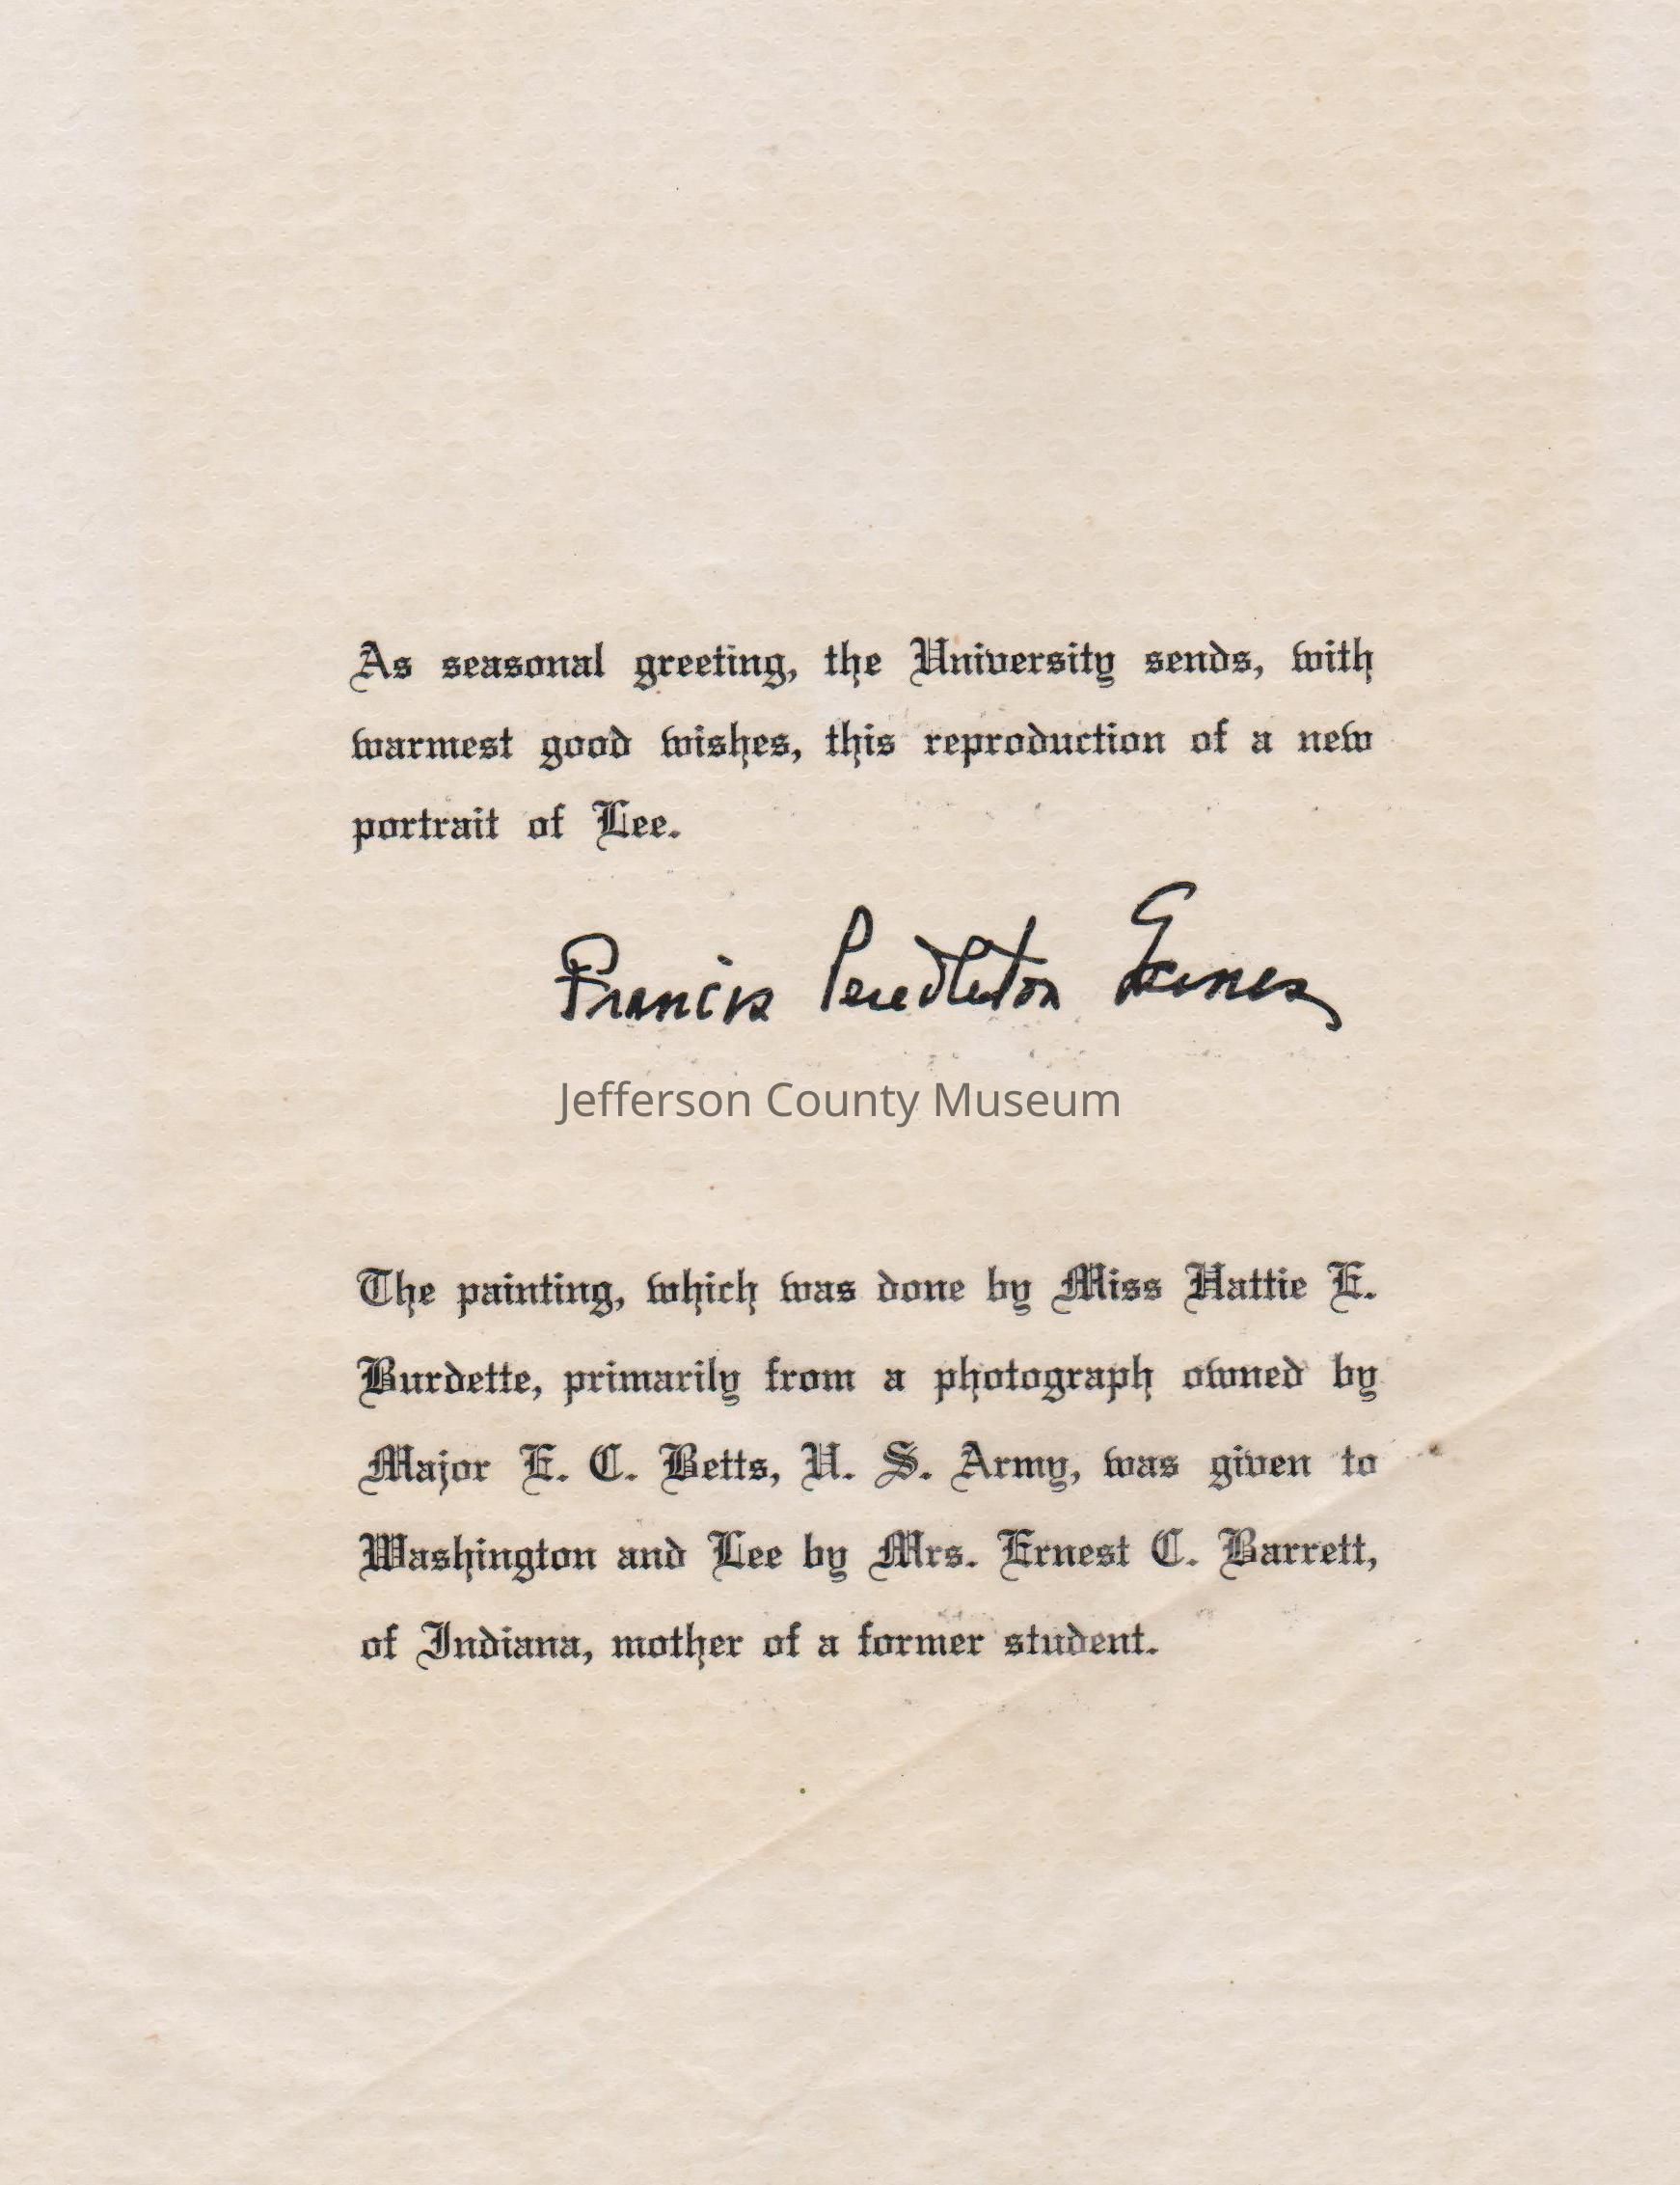 As seasonal greeting, the University sends, with
warmest good wishes, this reproduction of a new
portrait of Lee.
Francis Pendleton Gaines
Jefferson County Museum
The painting, which was done by Miss Hattie E.
Burdette, primarily from a photograph owned by
Major E. C. Betts, U. S. Army, was given to
Washington and Lee by Mrs. Ernest C. Barrett,
of Indiana, mother of a former student.